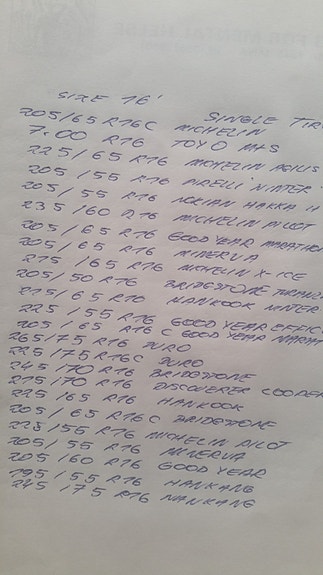 SIZE 16'
SINGLE TIR
205/65 R16C MICHELIN
7.00 R16 TOYO M+S
225/65 R16 MICHELIN AGILIS
205/55 R16 PIRELLI WINTER
205/55 R16 NOKIAN HAKKA
235/60 R16 MICHELIN PILOT
205/65 R16 GOOD YEAR MARATHO
205/65 R16 MINERVA
215/65 R16 MICHELIN X-ICE
205/50 R16 BRIDGESTONE TURANZA
215/65 R16 HANKOOK WINTER
225/55 R16 GOOD YEAR EFFIC
205/65 R16 C GOOD YEAR MARAT
265/75 R16 DURO
225/75 R16C DURO
245/70 R16 BRIDSTONE
215/70 R16 DISCOVERER COOPER
225/65 R16 HANKOOK
205/65 R16 C BRIDSTONE
225/55 R16 MICHELIN PILOT
205/55 R16 MINERVA
205/60 R16 GOOD YEAR
195/55 R16 NANKANG
245/75 R16 NANKANG